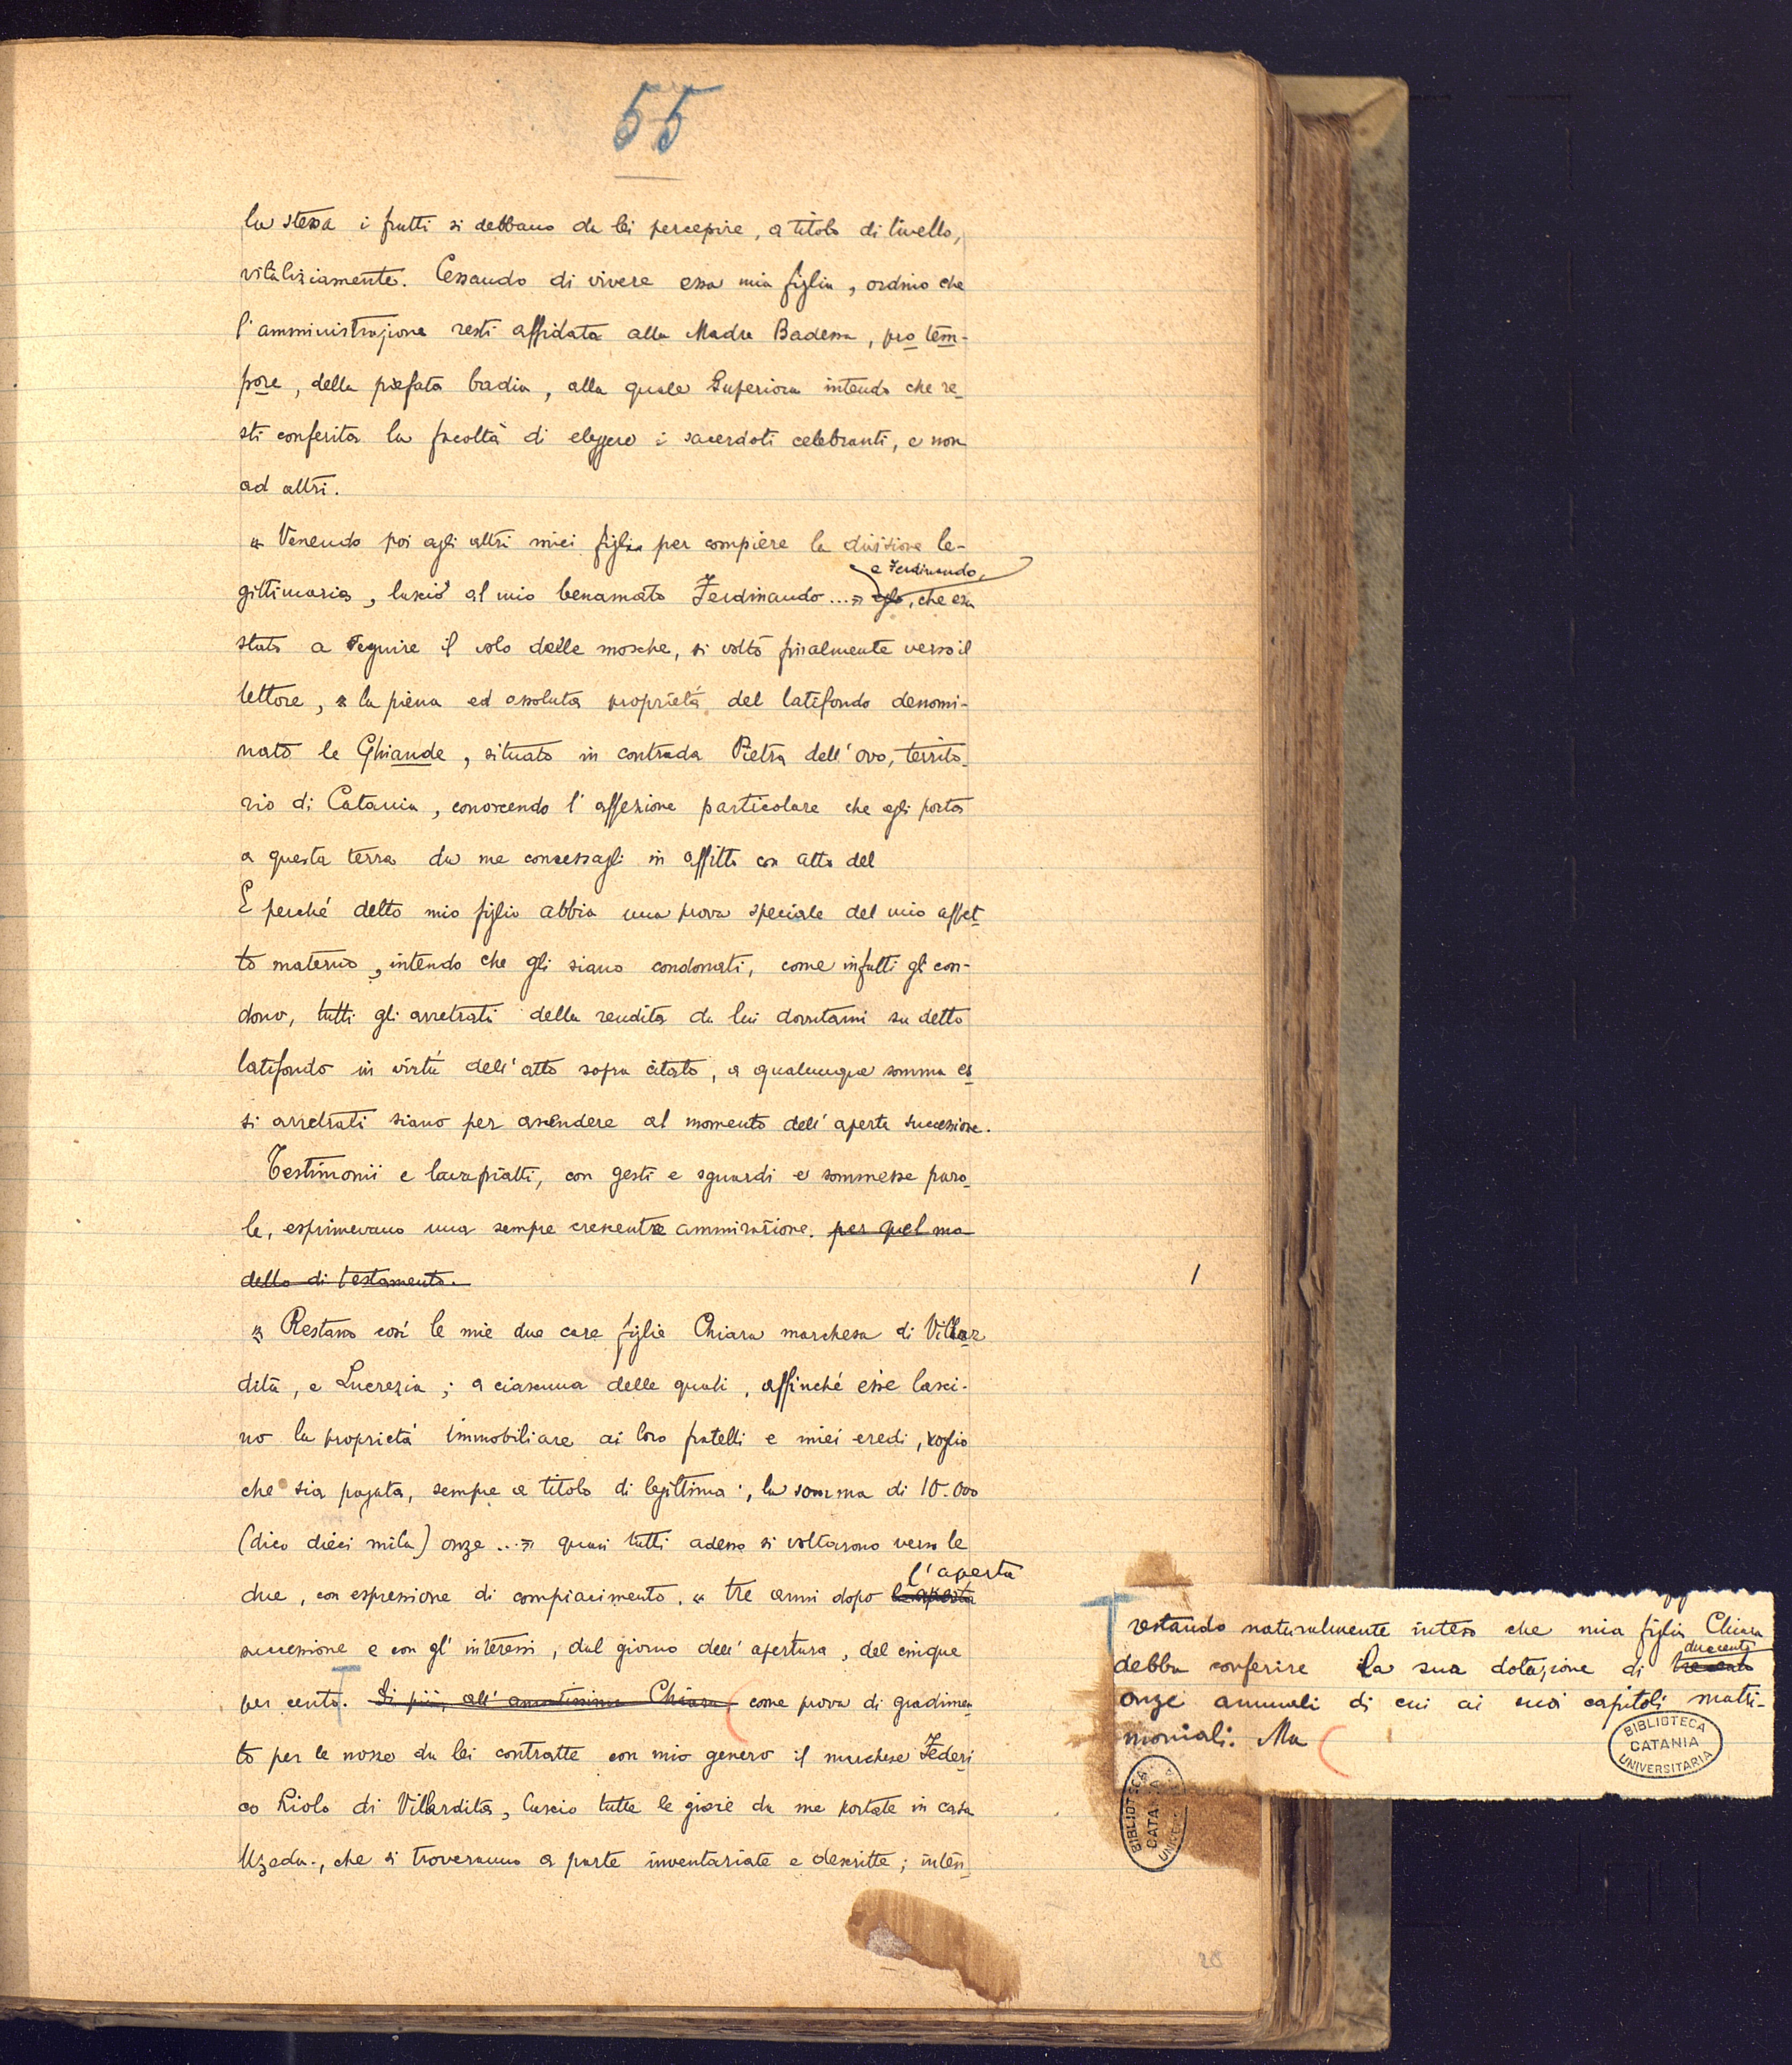 55
la stessa i frutti si debbano da lei percepire, a titolo di livello,
vitaliziamente. Cessando di vivere essa mia figlia, ordino che
l'amministrazione resti affidata alla Madre Badessa, pro tem-
pore, della prefata badia, alla quale Superiora intendo che re-
sti conferita la facoltà di eleggere i sacerdoti celebranti, e non
ad altri.
« Venendo poi agli altri miei figli per compiere la divisione le-
e Ferdinando,
gittimaria, lascio al mio benamato Ferdinando...» egli, che era
stato a seguire il volo delle mosche, si voltò finalmente verso il
lettore, « la piena ed assoluta proprietà del latifondo denomi-
nato le Ghiande, situato in contrada Pietra dell'ovo, territo-
rio di Catania, conoscendo l'affezione particolare che egli porta
a questa terra da me concessagli in affitto con atto del
E perché detto mio figlio abbia una prova speciale del mio affet-
to materno, intendo che gli siano condonati, come infatti gli con-
dono, tutti gli arretrati della rendita da lui dovutami su detto
latifondo in virtù dell'atto sopra citato, a qualunque somma es-
si arretrati siano per ascendere al momento dell'aperta successione.
Testimonii e lavapiatti, con gesti e sguardi e sommesse paro-
le, esprimevano una sempre crescente ammirazione. per quel mo
dello di testamento.
1
« Restano così le mie due care figlie Chiara marchesa di Villar
dita, e Lucrezia; a ciascuna delle quali, affinché esse lasci-
no la proprietà immobiliare ai loro fratelli e miei eredi, voglio
che sia pagata, sempre a titolo di legittima, la somma di 10.000
(dico dieci mila) onze...» quasi tutti adesso si voltarono verso le
l'aperta
due, con espressione di compiacimento. « tre anni dopo l'aperta
successione e con gl'interessi, dal giorno dell'apertura, del cinque
per cento. Di più, all'amatissima Chiara, come prova di gradimen-
to per le nozze da lei contratte con mio genero il marchese Federi
co Riolo di Villardita, lascio tutte le gioie da me portate in casa
Uzeda, che si troveranno a parte inventariate e descritte; inten-
restando naturalmente inteso che mia figlia Chiara
duecento
debba conferire la sua dotazione di trecento
onze annuali di cui ai suoi capitoli matri-
moniali. Ma
BIBLIOTECA
CATANIA
UNIVERSITARIA
BIBLIOTECA
CATANIA